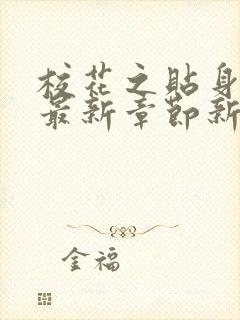 校花之贴身
最新章节新
金福